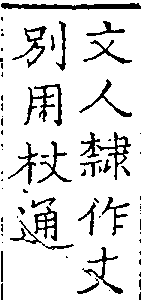 文人隸作丈
別用杖通